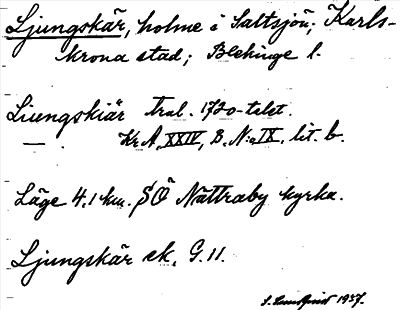 Ljungskär, holme i Saltsjön; Karls-
krona stad; Blekinge l.
Liungskiär trol. 1720-talet.
— . Kr. A. XXIV, B. N:o IX, lit. b.
Läge 4.1 km. SÖ Nättraby kyrka.
Ljungskär ek. G. 11.
J. Lundqvist 1937.